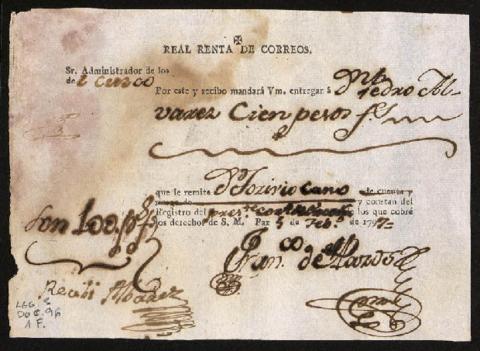 REAL RENTA DE CORREOS.
Sr. Administrador de los
de el Cusco
Por este y recibo mandará Vm. entregar á Dn. Pedro Al-
varez Cien pesos fs.
que le remite Dn. Torivio Cano de cuenta y
y constan del
Registro del presente los que cobré
los derechos de S. M. Paz 5 Febo. de 179
Son 100 ps. fs.
Franco. de
Recibi Albarez
LEG. 2
DOC. 96
1 F.